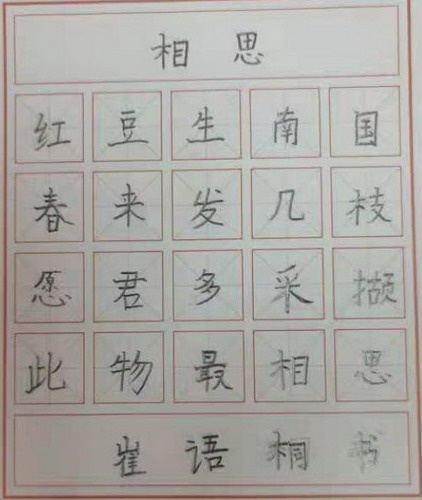 相思
红豆生南国
春来发几枝
愿君多采撷
此物最相思
崔语桐书